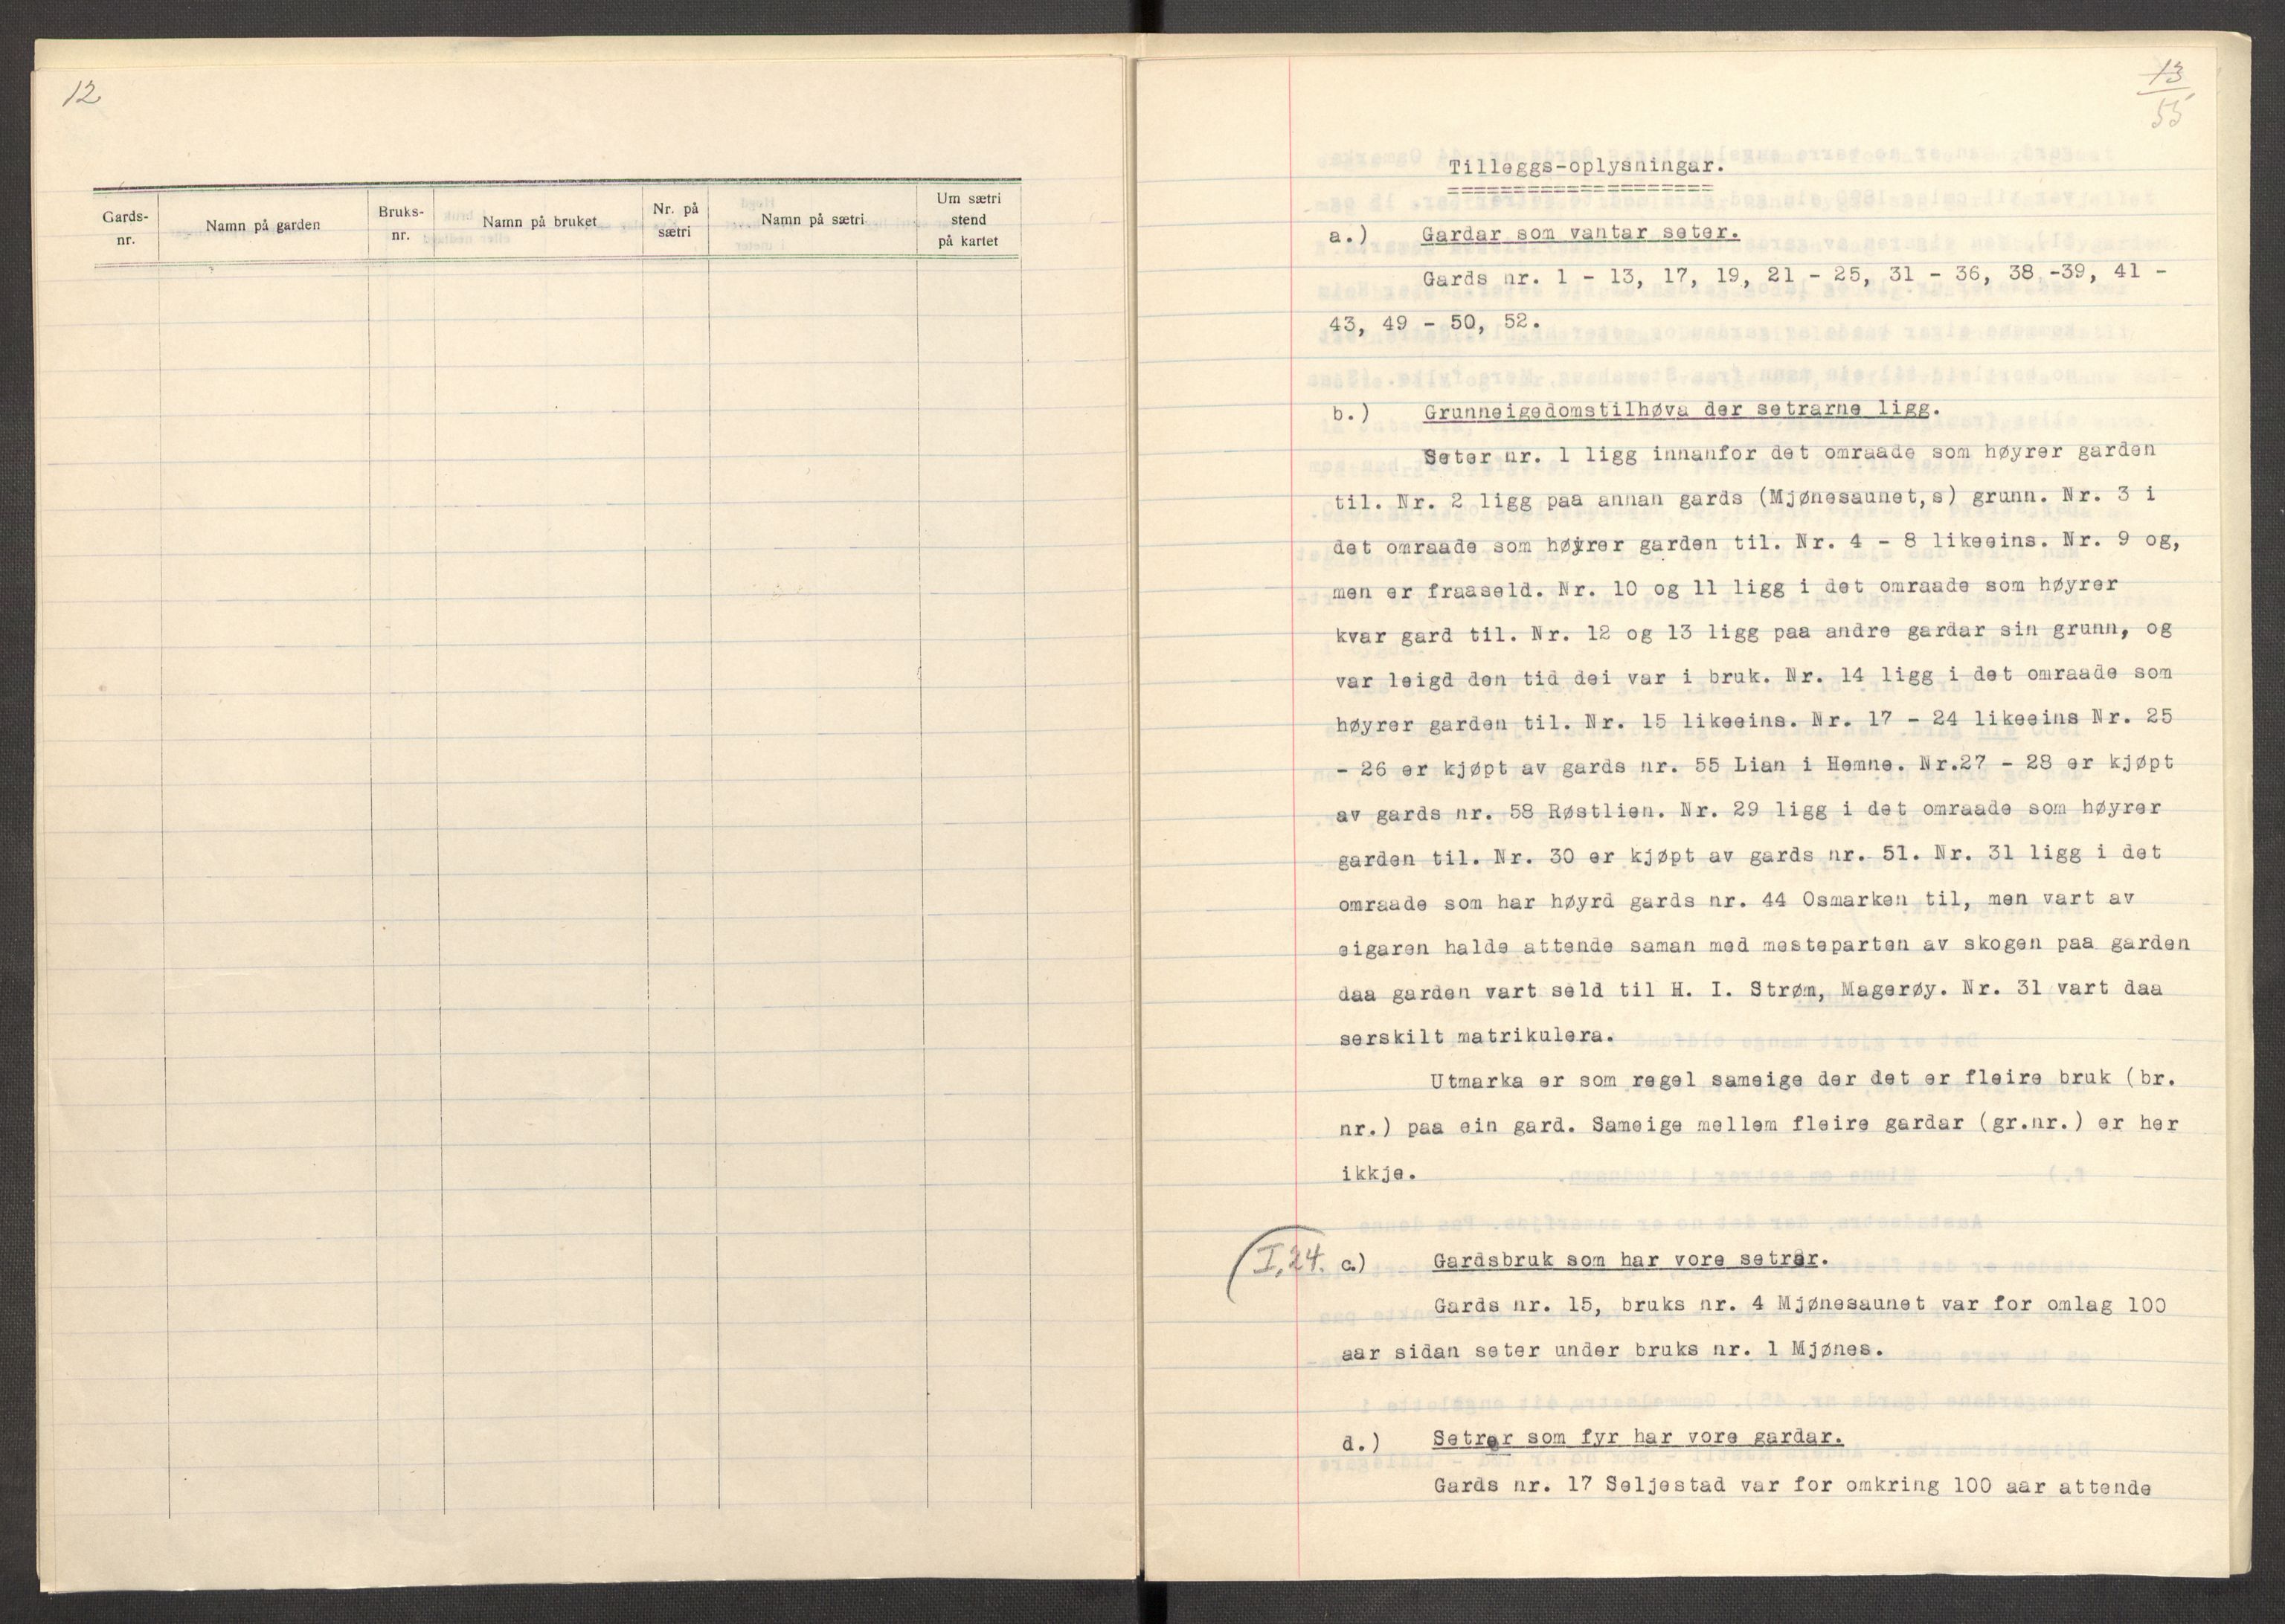 12
Gards-nr. Namn på garden Bruks-nr. Namn på bruket Nr. på sætri Namn på sætri Um sætri stend på kartet
13
55
Tilleggs-oplysningar.
====================
a.) Gardar som vantar seter.
Gards nr. 1 - 13, 17, 19, 21 - 25, 31 - 36, 38 -39, 41 -
43, 49 - 50, 52.
b.) Grunneigedomstilhøva der setrarne ligg.
Seter nr. 1 ligg innanfor det omraade som høyrer garden
til. Nr. 2 ligg paa annan gards (Mjønesaunet,s) grunn. Nr. 3 i
det omraade som høyrer garden til. Nr. 4 - 8 likeeins. Nr. 9 og,
men er fraaseld. Nr. 10 og 11 ligg i det omraade som høyrer
kvar gard til. Nr. 12 og 13 ligg paa andre gardar sin grunn, og
var leigd den tid dei var i bruk. Nr. 14 ligg i det omraade som
høyrer garden til. Nr. 15 likeeins. Nr. 17 - 24 likeeins Nr. 25
- 26 er kjøpt av gards nr. 55 Lian i Hemne. Nr.27 - 28 er kjøpt
av gards nr. 58 Røstlien. Nr. 29 ligg i det omraade som høyrer
garden til. Nr. 30 er kjøpt av gards nr. 51. Nr. 31 ligg i det
omraade som har høyrd gards nr. 44 Osmarken til, men vart av
eigaren halde attende saman med mesteparten av skogen paa garden
daa garden vart seld til H. I. Strøm, Magerøy. Nr. 31 vart daa
serskilt matrikulera.
Utmarka er som regel sameige der det er fleire bruk (br.
nr.) paa ein gard. Sameige mellem fleire gardar (gr.nr.) er her
ikkje.
(I,24. c.) Gardsbruk som har vore setrar.
Gards nr. 15, bruks nr. 4 Mjønesaunet var for omlag 100
aar sidan seter under bruks nr. 1 Mjønes.
d.) Setrer som fyr har vore gardar.
Gards nr. 17 Seljestad var for omkring 100 aar attende